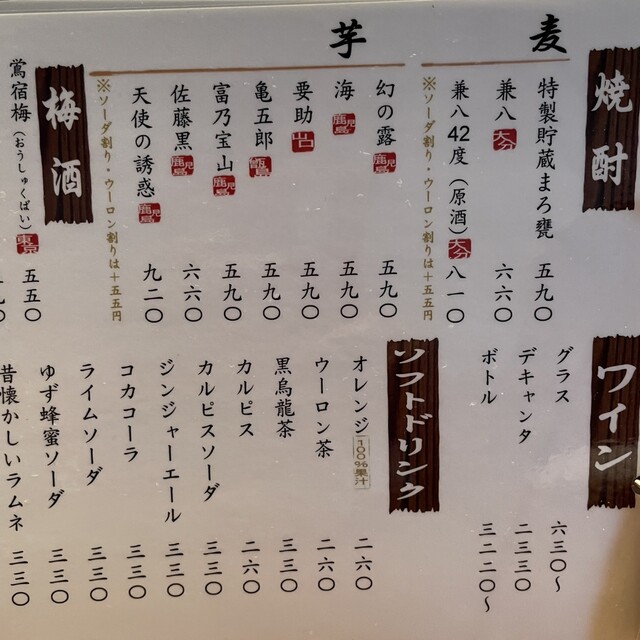 焼酎
麦
特製貯蔵まろ甕 五九〇
兼八 大分 六六〇
兼八42度（原酒） 大分 八一〇
※ソーダ割り・ウーロン割りは＋五五円
芋
幻の露 鹿児島 五九〇
海 鹿児島 五九〇
要助 山口 五九〇
亀五郎 五九〇
富乃宝山 鹿児島 五九〇
佐藤黒 鹿児島 六六〇
天使の誘惑 鹿児島 九二〇
※ソーダ割り・ウーロン割りは＋五五円
梅酒
鶯宿梅（おうしゅくばい） 東京 五五〇
九〇
ワイン
グラス 六三〇〜
デキャンタ 二三三〇
ボトル 三二二〇〜
ソフトドリンク
オレンジ 100%果汁 二六〇
ウーロン茶 二六〇
黒烏龍茶 三三〇
カルピス 二六〇
カルピスソーダ 三三〇
ジンジャーエール 三三〇
コカコーラ 三三〇
ライムソーダ 三三〇
ゆず蜂蜜ソーダ 三三〇
昔懐かしいラムネ 三三〇